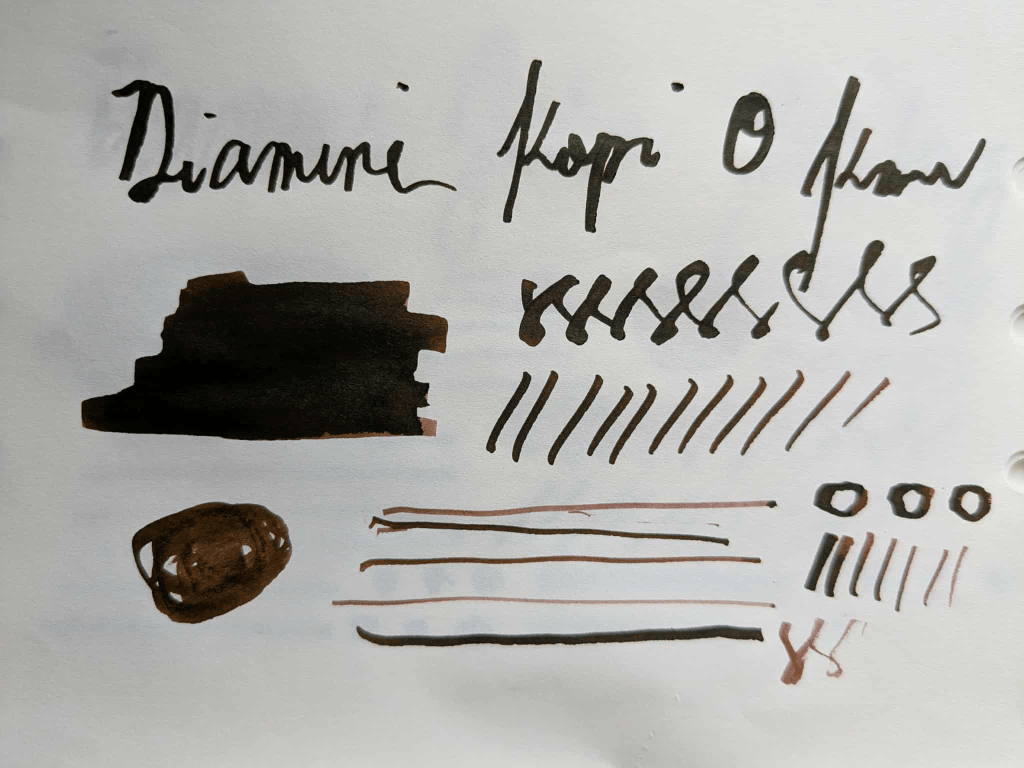 Diamine Kopi O Kaw